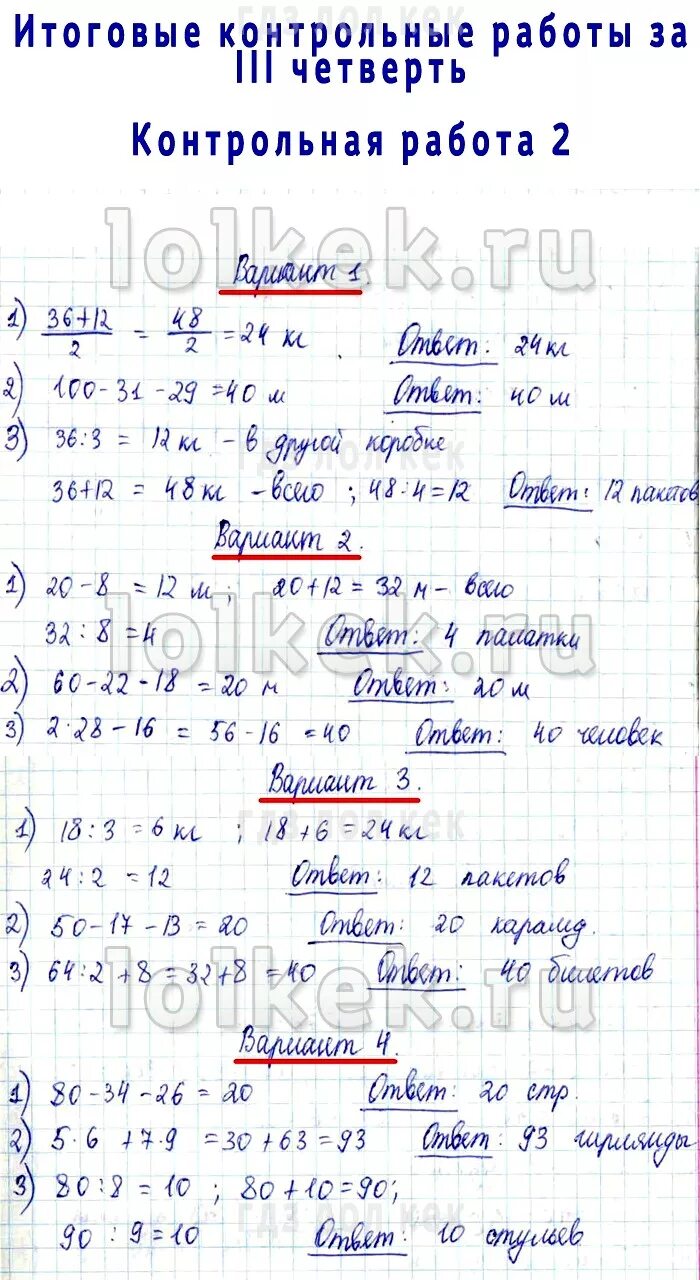 Итоговые контрольные работы за
III четверть
Контрольная работа 2
lolkek.ru
Вариант 1.
1) (36+12)/2 = 48/2 = 24 кг Ответ: 24 кг
2) 100-31-29=40 м Ответ: 40 м
3) 36:3 = 12 кг - в другой коробке
36+12 = 48 кг - всего ; 48:4=12 Ответ: 12 пакетов
Вариант 2.
1) 20-8 = 12 м ; 20+12 = 32 м - всего
32 : 8 = 4 Ответ: 4 палатки
2) 60-22-18 = 20 м Ответ: 20 м
3) 2·28-16 = 56-16 = 40 Ответ: 40 человек
Вариант 3.
1) 18:3 = 6 кг ; 18+6 = 24 кг
24:2 = 12 Ответ: 12 пакетов
2) 50-17-13 = 20 Ответ: 20 карамд.
3) 64:2 +8 = 32+8 = 40 Ответ: 40 билетов
lolkek.ru
Вариант 4.
1) 80-34-26 = 20 Ответ: 20 стр.
2) 5·6 +7·9 = 30+63 = 93 Ответ: 93 гирлянды
3) 80:8 = 10 ; 80+10=90;
90 : 9 = 10 Ответ: 10 стульев
гдз лол кек